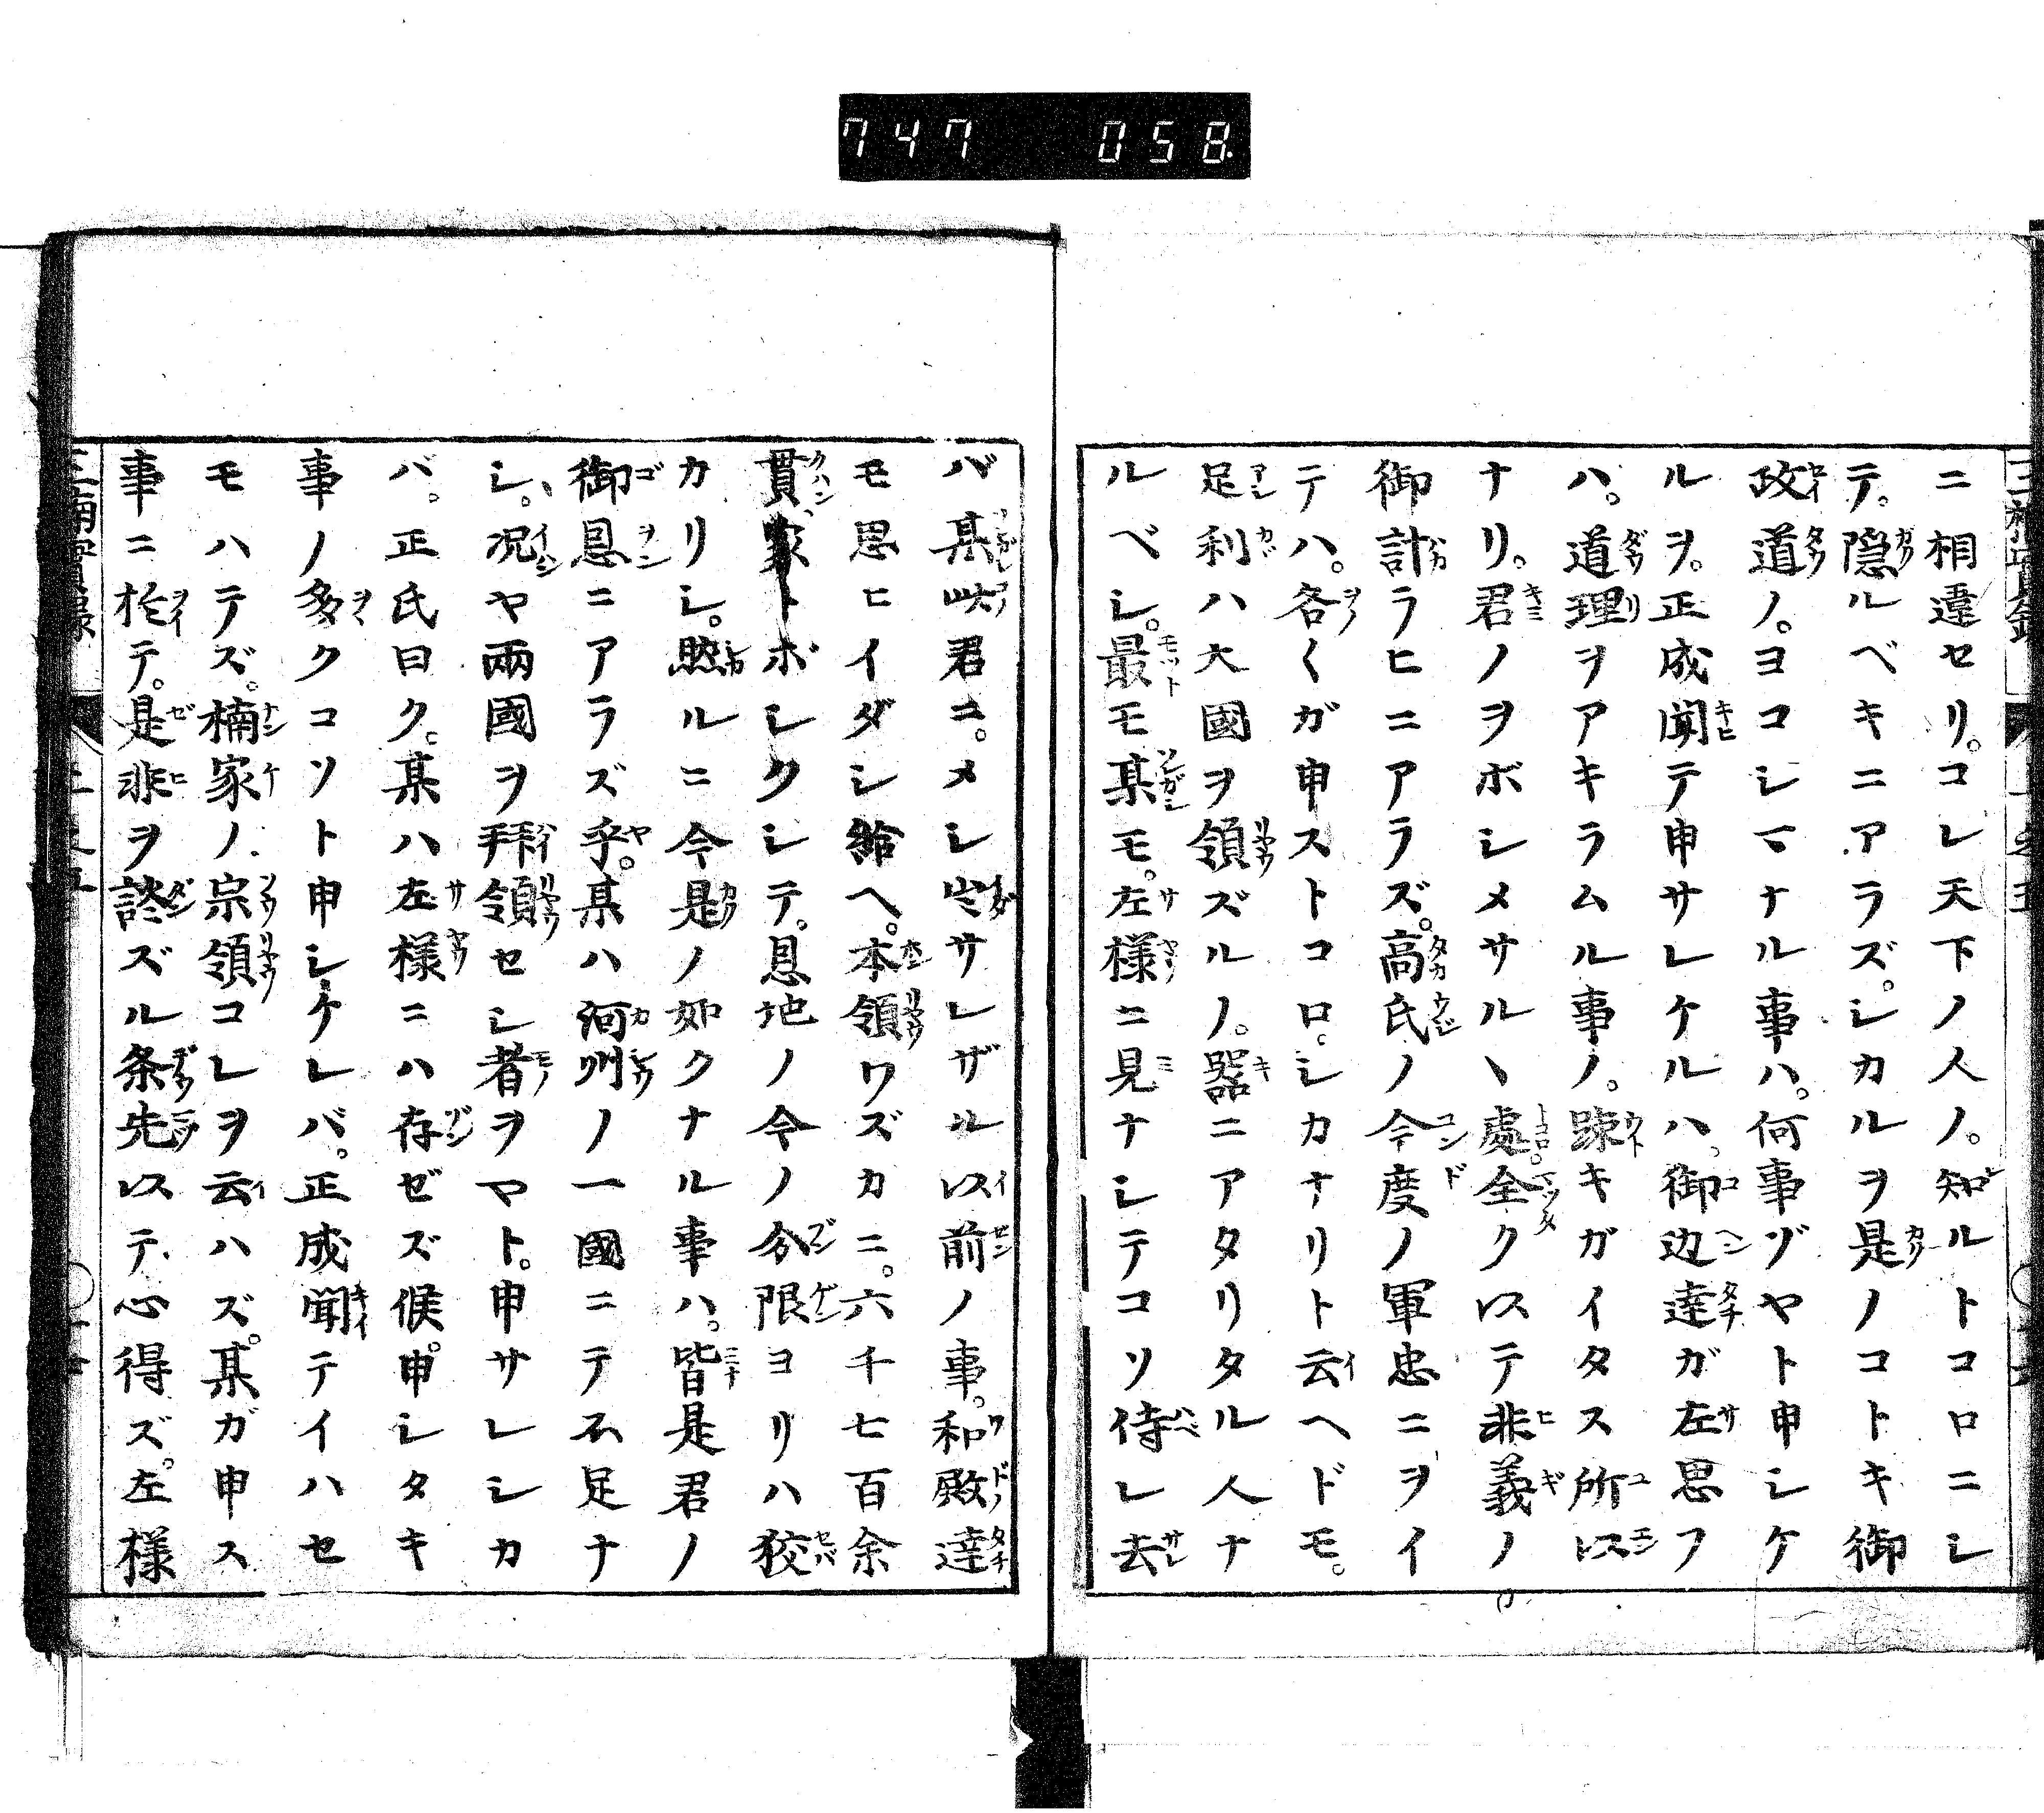 747 058
ニ相違セリ。コレ天下ノ人ノ。知ルトコロニシ
テ。隠ルベキニアラズ。シカルヲ是ノコトキ御
政道ノ。ヨコシマナル事ハ。何事ゾヤト申シケ
ルヲ。正成聞テ申サレケルハ。御辺達ガ左思フ
ハ。道理ヲアキラムル事ノ。踈キガイタス所以
ナリ。君ノヲボシメサルヽ處。全ク以テ非義ノ
御計ラヒニアラズ。高氏ノ今度ノ軍忠ニヲイ
テハ。各〱ガ申ストコロ。シカナリト云ヘドモ。
足利ハ大國ヲ領ズルノ。器ニアタリタル人ナ
ルベシ。最モ某モ。左様ニ見ナシテコソ侍レ去
バ某此君ニ。メシ出サレザル以前ノ事。和殿達
モ思ヒイダシ給ヘ。本領ワズカニ。六千七百余
貫家トボシクシテ。恩地ノ今ノ分限ヨリハ狡
カリシ。然ルニ今是ノ如クナル事ハ。皆是君ノ
御恩ニアラズ乎。某ハ河州ノ一國ニテ不足ナ
シ。況ヤ兩國ヲ拜領セシ者ヲヤト。申サレシカ
バ。正氏曰ク。某ハ左様ニハ存ゼズ候。申シタキ
事ノ多クコソト申シケレバ。正成聞テイハセ
モハテズ。楠家ノ宗領コレヲ云ハズ。某ガ申ス
事ニ於テ。是非ヲ談ズル条先以テ心得ズ。左様